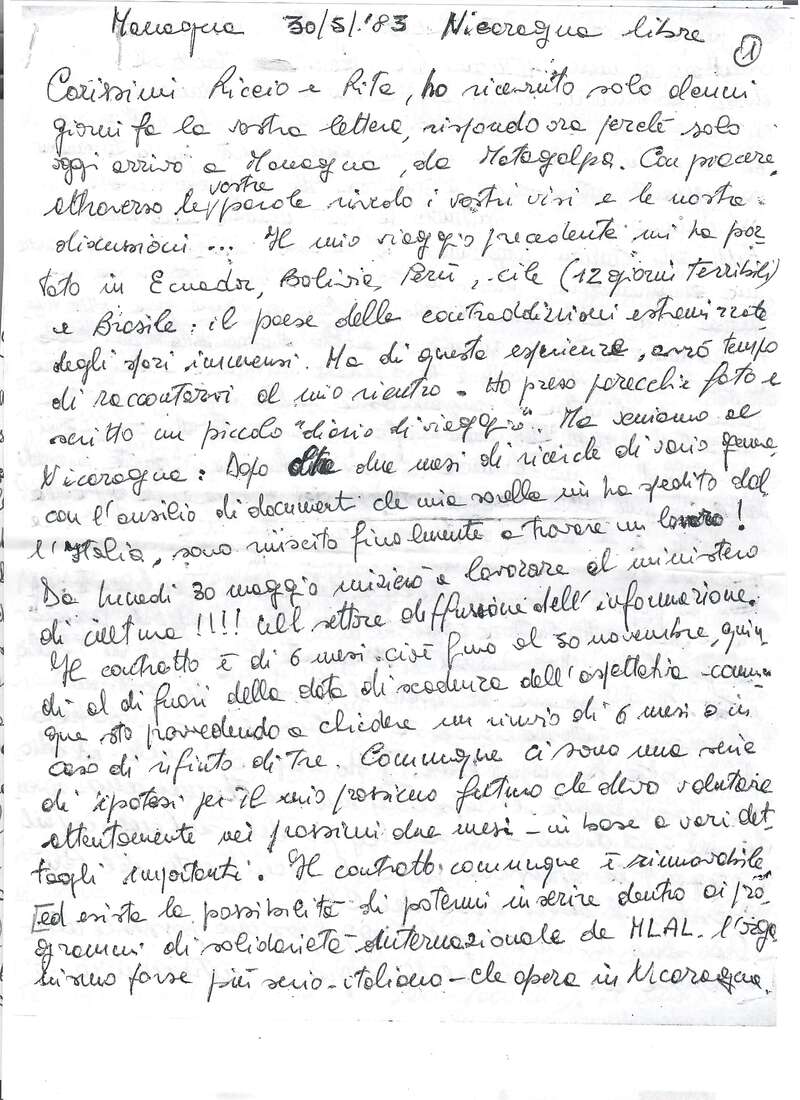 Managua 30/5/.'83 Nicaragua libre
1
Carissimi Riccio e Rita, ho ricevuto solo alcuni
giorni fa la vostra lettera, rispondo ora perché solo
oggi arrivo a Managua, da Matagalpa. Con piacere,
attraverso le vostre parole rivedo i vostri visi e le nostre
discussioni ... Il mio viaggio precedente mi ha por-
tato in Ecuador, Bolivia, Perù, Cile (12 giorni terribili)
e Brasile: il paese delle contraddizioni estremizzate
degli spazi immensi. Ma di questa esperienza, avrò tempo
di raccontarvi al mio rientro. Ho preso parecchie foto e
scritto un piccolo "diario di viaggio". Ma veniamo al
Nicaragua: Dopo due mesi di ricerche di vario genere,
con l'ausilio di documenti che mia sorella mi ha spedito dal
l'Italia, sono riuscito finalmente a trovare un lavoro!
Da lunedì 30 maggio inizierò a lavorare al ministero
di cultura !!!! nel settore diffusione dell'informazione.
Il contratto è di 6 mesi. cioè fino al 30 novembre, quin
di al di fuori della data di scadenza dell'aspettativa - comun
que sto provvedendo a chiedere un rinvio di 6 mesi o in
caso di rifiuto di Tre. Comunque ci sono una serie
di ipotesi per il mio prossimo futuro che devo valutare
attentamente nei prossimi due mesi - in base a vari det-
tagli importanti. Il contratto comunque è rinnovabile
ed esiste la possibilità di potermi inserire dentro ai pro
grammi di solidarietà internazionale de MLAL. l'orga
nismo forse più serio - italiano - che opera in Nicaragua.